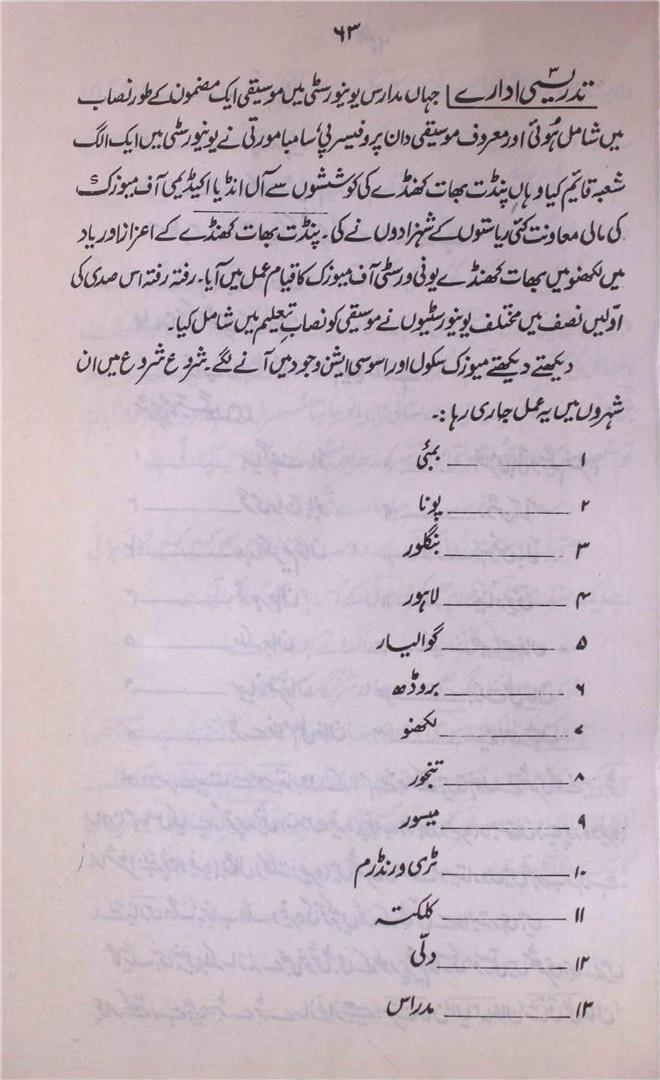 ۶۳
تدریسی ادارے ۳ جہاں مدارس یونیورسٹی میں موسیقی ایک مضمون کے طور نصاب
میں شامل ہوئی اور معروف موسیقی دان پروفیسر پی سامبا مورتی نے یونیورسٹی میں ایک الگ
شعبہ قائیم کیا وہاں پنڈت بھات کھنڈے کی کوششوں سے آل انڈیا اکیڈیمی آف میوزک
کی مالی معاونت کئی ریاستوں کے شہزادوں نے کی۔ پنڈت بھات کھنڈے کے اعزاز اور یاد
میں لکھنو میں بھات کھنڈے یونی ورسٹی آف میوزک کا قیام عمل میں آیا۔ رفتہ رفتہ اس صدی کی
اوّلیں نصف میں مختلف یونیورسٹیوں نے موسیقی کو نصاب تعلیم میں شامل کیا۔
دیکھتے دیکھتے میوزک سکول اور اسوسی ایشن وجود میں آنے لگے۔ شروع شروع میں ان
شہروں میں یہ عمل جاری رہا :۔
۱ ــــــــ بمبئی
۲ ــــــــ پونا
۳ ــــــــ بنگلور
۴ ــــــــ لاہور
۵ ــــــــ گوالیار
۶ ــــــــ بروڈھ
۷ ــــــــ لکھنو
۸ ــــــــ تنجور
۹ ــــــــ میسور
۱۰ ــــــــ ٹری ورنڈرم
۱۱ ــــــــ کلکتہ
۱۲ ــــــــ دلّی
۱۳ ــــــــ مدراس